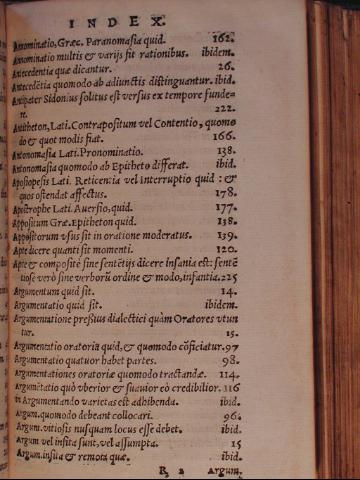 INDEX.
Annominatio, Græc. Paranomasia quid. 162.
Annominatio multis & varijs fit rationibus. ibidem.
Antecedentia quæ dicantur. 26.
Antecedētia quomodo ab adiunctis distinguantur. ibid.
Antipater Sidonius solitus est versus ex tempore funde-
re. 222.
Antitheton, Lati. Contrapositum vel Contentio, quomo
do & quot modis fiat. 166.
Antonomasia Lati. Pronominatio. 138.
Antonomasia quomodo ab Epitheto differat. ibid.
Aposiopesis Lati. Reticentia vel Interruptio quid : &
quos ostendat affectus. 178.
Apostrophe Lati. Auersio, quid. 177.
Appositum Græ. Epitheton quid. 138.
Appositorum vsus sit in oratione moderatus. 139.
Apte dicere quanti sit momenti. 120.
Apte & compositè sine sentētijs dicere insania est: sentē
tiosè verò sine verborū ordine & modo, infantia. 225
Argumentum quid sit. 14.
Argumentatio quid sit. ibidem.
Argumentatione preßius dialectici quàm Oratores vtun
tur. 15.
Argumentatio oratoria quid, & quomodo cōficiatur. 97
Argumentatio quatuor habet partes. 98.
Argumentationes oratoriæ quomodo tractandæ. 114.
Argumētatio quò vberior & suauior eò credibilior. 116
in Argumentando varietas est adhibenda. ibid.
Argum. quomodo debeant collocari. 96.
Argum. vitiosis nusquam locus esse debet. ibid.
Argum vel insita sunt, vel assumpta. 15
Argum. insita & remota quæ. ibid.
R 2 Argum.